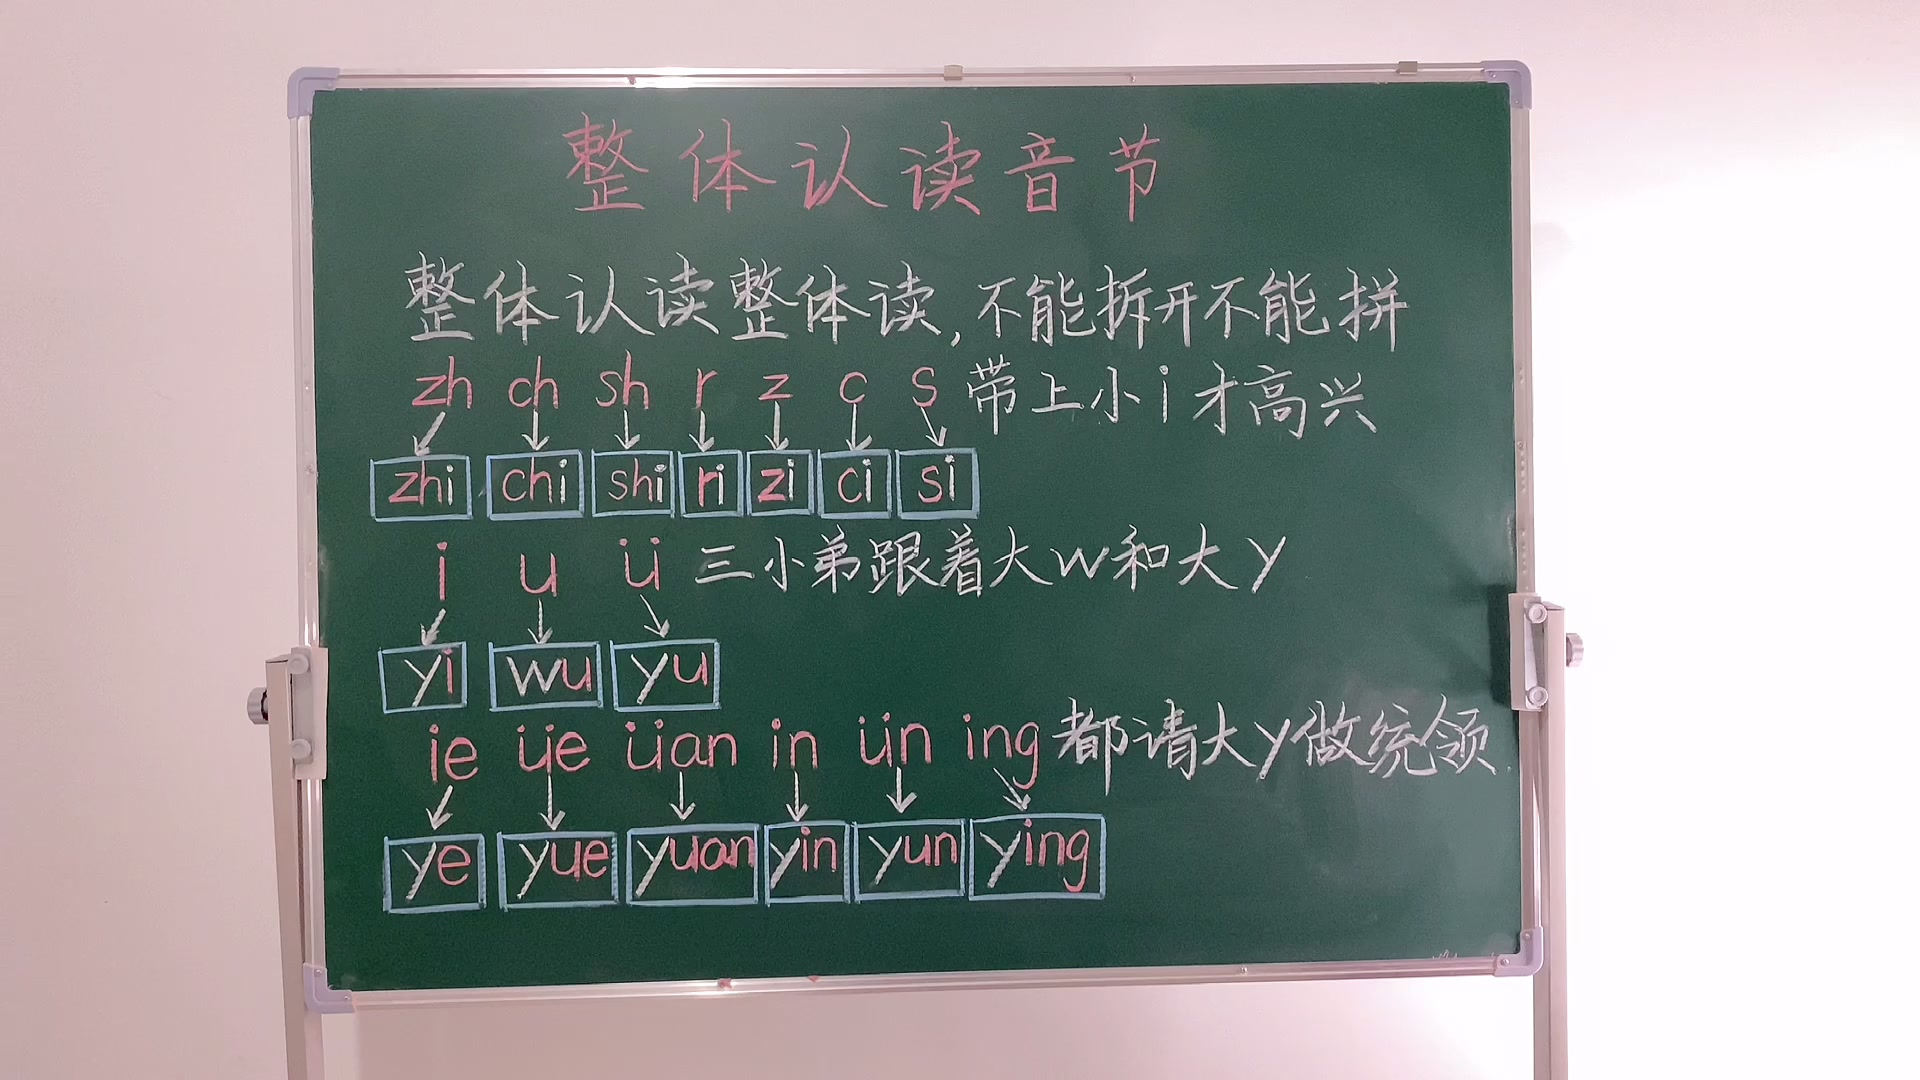 整体认读音节
整体认读整体读,不能拆开不能拼
zh ch sh r z c s 带上小i才高兴
zhi chi shi ri zi ci si
i u ü 三小弟跟着大w和大y
yi wu yu
ie üe üan in ün ing 都请大y做统领
ye yue yuan yin yun ying